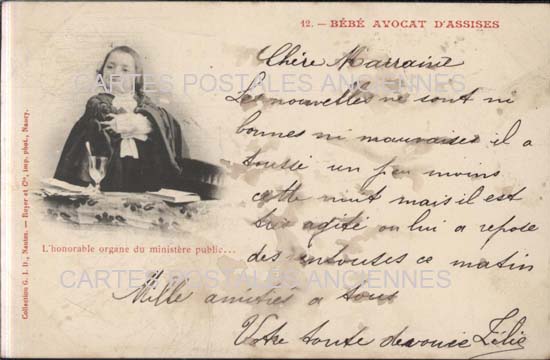 12. — BÉBÉ AVOCAT D'ASSISES
Chère Marraine
Les nouvelles ne sont ni
bonnes ni mauvaises il a
toussé un peu moins
cette nuit mais il est
très agité on lui a reposé
des ventouses ce matin
Mille amitiés a tous
Votre toute dévouée Zélie
L'honorable organe du ministère public...
Collection G. I. D., Nantes. — Royer et Cie, imp. phot., Nancy.
CARTES POSTALES ANCIENNES
CARTES POSTALES ANCIENNES